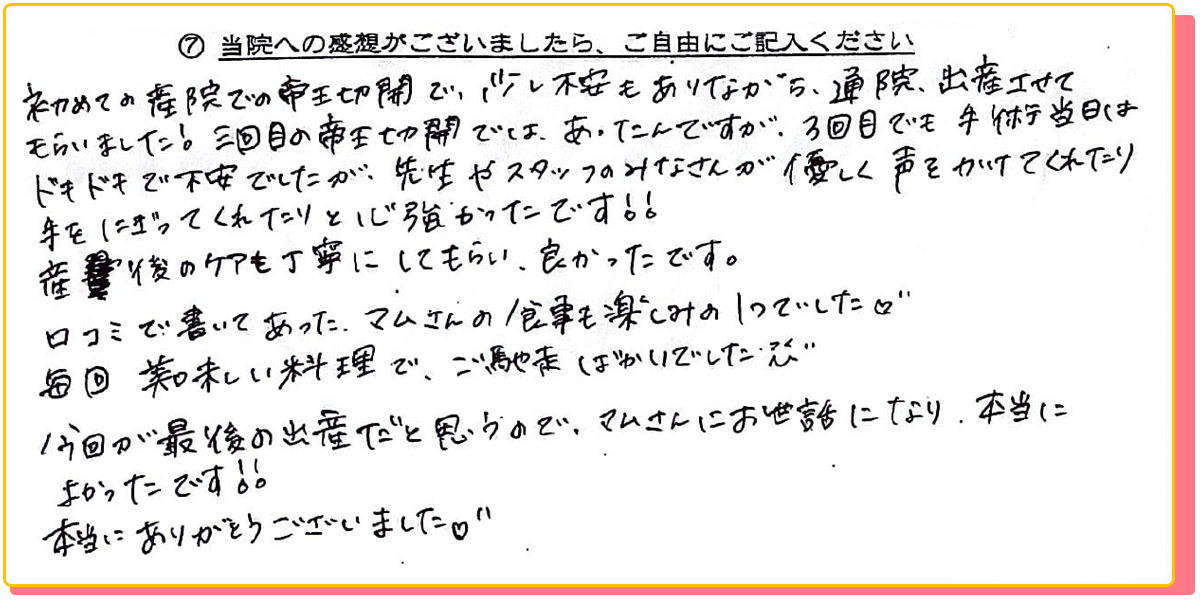 ⑦ 当院への感想がございましたら、ご自由にご記入ください
初めての産院での帝王切開で、少し不安もありながら、通院、出産させて
もらいました! 三回目の帝王切開では、あったんですが、3回目でも手術当日は
ドキドキで不安でしたが、先生やスタッフのみなさんが優しく声をかけてくれたり
手をにぎってくれたりと心強かったです!!
産後のケアも丁寧にしてもらい、良かったです。
口コミで書いてあった、マムさんの食事も楽しみの1つでした♡"
毎回美味しい料理で、ご馳走ばかりでした
今回が最後の出産だと思うので、マムさんにお世話になり、本当に
よかったです!!
本当にありがとうございました♡"